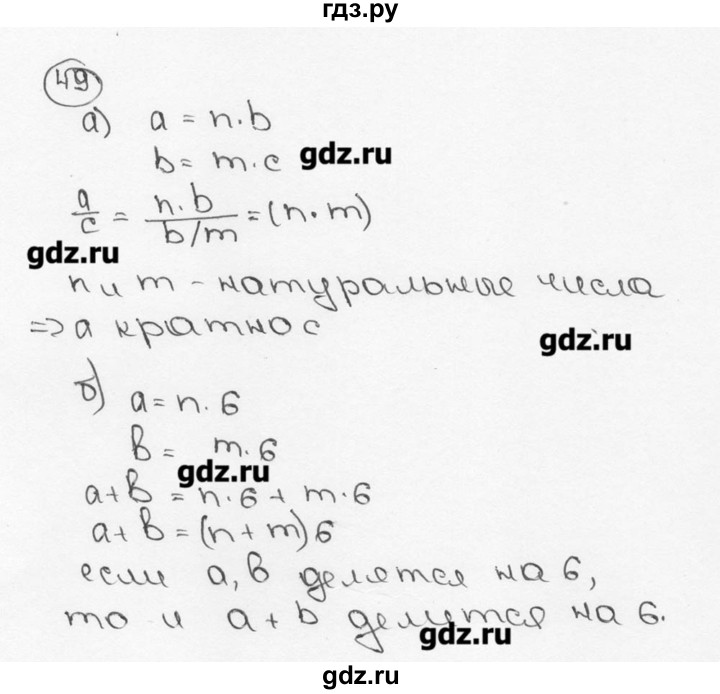 гдз.ру
49
а) a = n·b
b = m·c gdz.ru
a/c = n·b / b/m = (n·m)
gdz.ru
n и m - натуральные числа
=> a кратно c
gdz.ru
б) a = n·6
b = m·6
gdz.ru
a+b = n·6 + m·6
a+b = (n+m)6
если a, b делятся на 6,
то и a+b делится на 6.
gdz.ru
gdz.ru